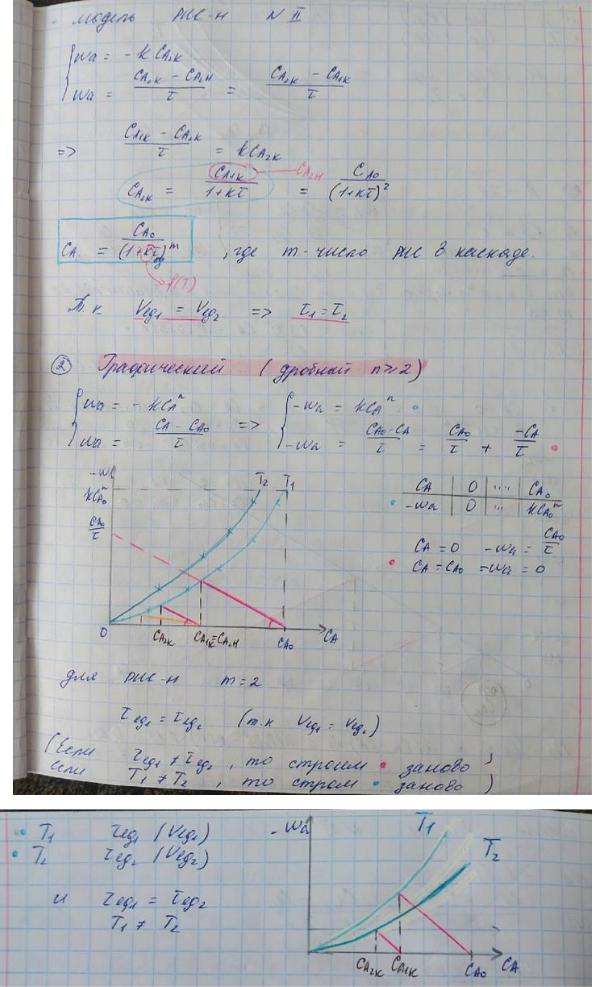 модель РИС-Н N II
{ wa = - k CA2к
wa = (CA2к - CA2н)/τ = (CA2к - CA1к)/τ
=> (CA1к - CA2к)/τ = kCA2к
CA2к = CA1к/(1+kτ) = CA0/(1+kτ)^2
CA2н
CA = CA0/(1+kτед)^m , где m - число РИС в каскаде.
f(T)
Т.к Vед1 = Vед2 => τ1 = τ2
② Графический (дробный n ≥ 2)
{ wa = - kCA^n => { -wa = kCA^n
wa = (CA - CA0)/τ => -wa = (CA0 - CA)/τ = CA0/τ + (-CA)/τ
-wa T2 T1
kCA0^n
CA0/τ
0 CA2к CA1к=CA2н CA0 CA
CA 0 .... CA0
-wa 0 ... kCA0^n
CA = 0 -wa = CA0/τ
CA = CA0 -wa = 0
для РИС-Н m = 2
τед1 = τед2 (т.к Vед1 = Vед2)
(Если τед1 ≠ τед2 , то строим • заново)
если T1 ≠ T2 , то строим • заново)
• T1 τед1 (Vед1)
• T2 τед2 (Vед2)
и τед1 = τед2
T1 ≠ T2
-wa T1 T2
CA2к CA1к CA0 CA